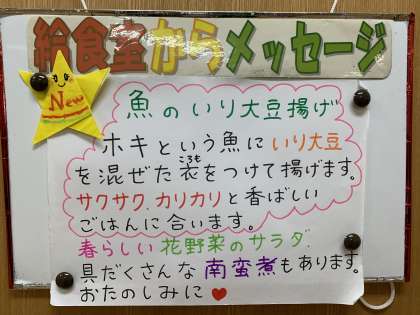 給食室からメッセージ
New
魚のいり大豆揚げ
ホキという魚にいり大豆
を混ぜた衣をつけて揚げます。
ころも
サクサク、カリカリと香ばしい
ごはんに合います。
春らしい花野菜のサラダ、
具だくさんな南蛮煮もあります。
おたのしみに♥